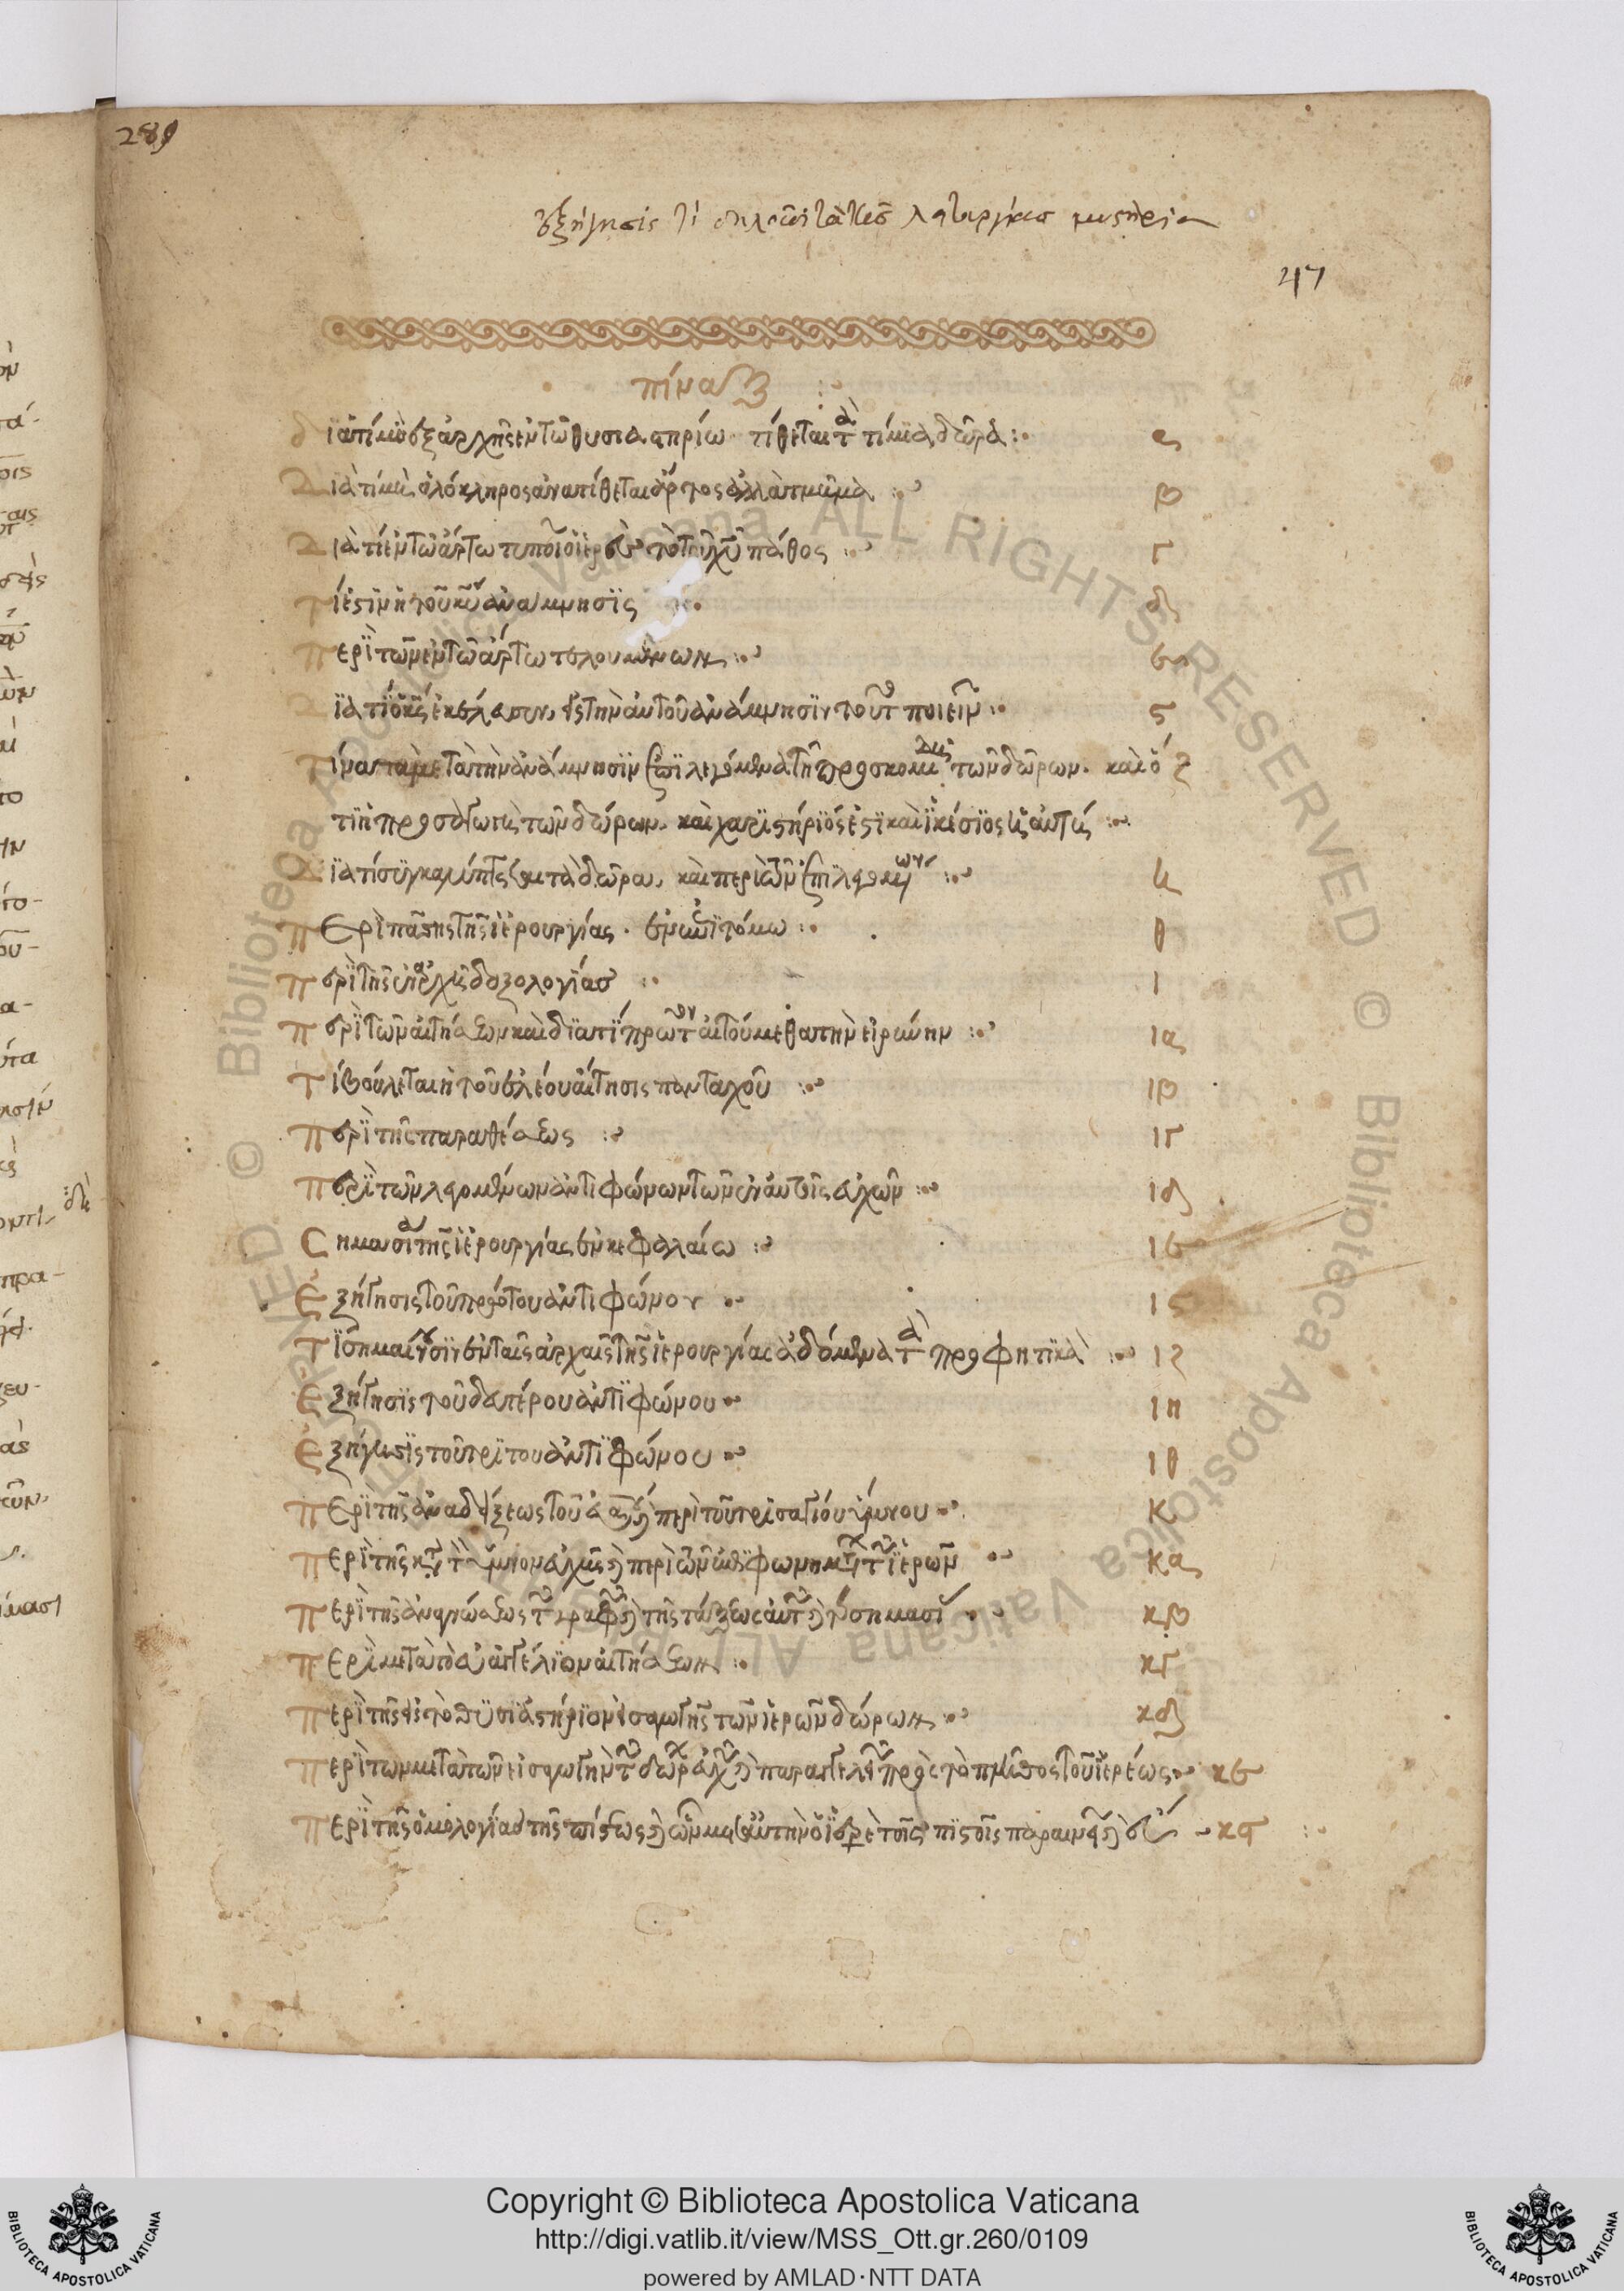 289
ἐξήγησις τί δηλοῦσι τὰ τῆς λητουργίας μυστήρια
47
πίναξ
διατί μὴ ἐξαρχῆς ἐν τῶ θυσιαστηρίω τίθεται τὰ τίμια δῶρα :· α
Διὰ τί μὴ ὁλόκληρος ἀνατίθεται ἄρτος ἀλλὰ τμῆμα :· β
Διὰ τί ἐν τῶ ἄρτω τυποῖ ὁ ἱερεὺς τὸ τοῦ χυ πάθος :· γ
Τί ἐστιν ἡ τοῦ κυ ἀνάμνησις :· δ
Περὶ τῶν ἐν τῶ ἄρτω τελουμένων :· ε
Διατί ὁ κς ἐκέλευσεν, εἰς τὴν αὐτοῦ ἀνάμνησιν τοῦτο ποιεῖν :· ϛ
Τίνα τὰ μετὰ τὴν ἀνάμνησιν ἐπιλεγόμενα τῆ προσκομιδῆ τῶν δώρων. καὶ ὅ ζ
τι ἡ προσαγωγὴ τῶν δώρων, καὶ χαριστήριός ἐστι καὶ ἱκέσιος ἡ αὐτή :·
Διατί συγκαλύπτεται τὰ δῶρα, καὶ περὶ τῶν ἐπιλεγομένων :· η
Περὶ πάσης τῆς ἱερουργίας. ἐν ἐπιτόμω :· θ
Περὶ τῆς ἐν ἀρχῆ δοξολογίας :· ι
Περὶ τῶν αἰτήσεων καὶ διατί πρῶτον αἰτούμεθα τὴν εἰρήνην :· ια
Τί βούλεται ἡ τοῦ ἐλέου αἴτησις πανταχοῦ :· ιβ
Περὶ τῆς παραθέσεως :· ιγ
Περὶ τῶν λεγομένων ἀντιφώνων τῶν ἐν αὐτοῖς εὐχῶν :· ιδ
Σημασία τῆς ἱερουργίας ἐν κεφαλαίω :· ιε
Ἐξήγησις τοῦ πρώτου ἀντιφώνου :· ιϛ
Τί σημαίνουσιν ἐν ταῖς ἀρχαῖς τῆς ἱερουργίας ἀδόμενα τὰ προφητικὰ :· ιζ
Ἐξήγησις τοῦ δευτέρου ἀντιφώνου :· ιη
Ἐξήγησις τοῦ τρίτου ἀντιφώνου :· ιθ
Περὶ τῆς ἀναδείξεως τοῦ εὐαγγ καὶ περὶ τοῦ τρισαγίου ὕμνου :· κ
Περὶ τῆς κατὰ τὸν ὕμνον εὐχῆς καὶ περὶ τῶν ἐκφωνημάτων τῶν ἱερῶν :· κα
Περὶ τῆς ἀναγνώσεως τῶν γραφῶν καὶ τῆς τάξεως αὐτῶν καὶ σημασί :· κβ
Περὶ μετὰ τὸ εὐαγγέλιον αἰτήσεων :· κγ
Περὶ τῆς εἰς τὸ θυσιαστήριον εἰσαγωγῆς τῶν ἱερῶν δώρων :· κδ
Περὶ τῶν μετὰ τῶν εἰσαγωγὴν τῶν δώρων εὐχῶν καὶ παραγγελιῶν πρὸς τὸ πλῆθος τοῦ ἱερέως :· κε
Περὶ τῆς ὁμολογίας τῆς πίστεως καὶ ὧν μετ᾽ αὐτὴν ὁ ἱερεὺς τοῖς πιστοῖς παραινεῖ καὶ :· κϛ
Copyright © Biblioteca Apostolica Vaticana
http://digi.vatlib.it/view/MSS_Ott.gr.260/0109
powered by AMLAD·NTT DATA
BIBLIOTECA APOSTOLICA VATICANA
BIBLIOTECA APOSTOLICA VATICANA
© Biblioteca Apostolica Vaticana ALL RIGHTS RESERVED © Biblioteca Apostolica Vaticana ALL RIGHTS RESERVED